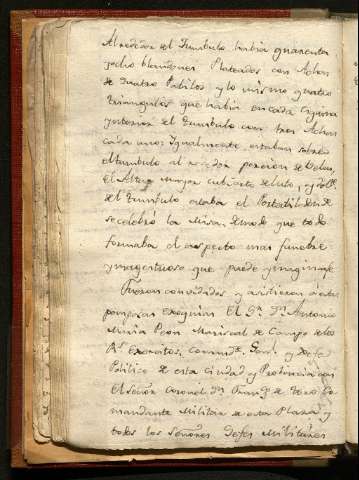 Alrededor del Tumbulo habia quarenta
y ocho blandones Plateados con Achas
de quatro Pabilos y lo mismo quatro
triangulos que habia en cada esquina
del Tumbulo con tres Achas
cada uno: Igualmente estaban sobre
el tumbulo al rededor porcion de Velas,
el Altar mayor cubierto de luto, y
del Tumbulo estaba el Portatil donde
se celebró la Misa. de modo que todo
formaba el aspecto mas funebre
y magestuoso que puede ymaginarse
Fueron convidados y asistieron á estas
pomposas exequias El Sr. Dn. Antonio
Maria Peon Mariscal de Campo de los
Rs. Exercitos, Comandte. Genl. y Gefe
Politico de esta Ciudad y Provincia con
el Señor Coronel Dn. Franco. de
Comandante Militar de esta Plaza y
todos los Señores Gefes Militares